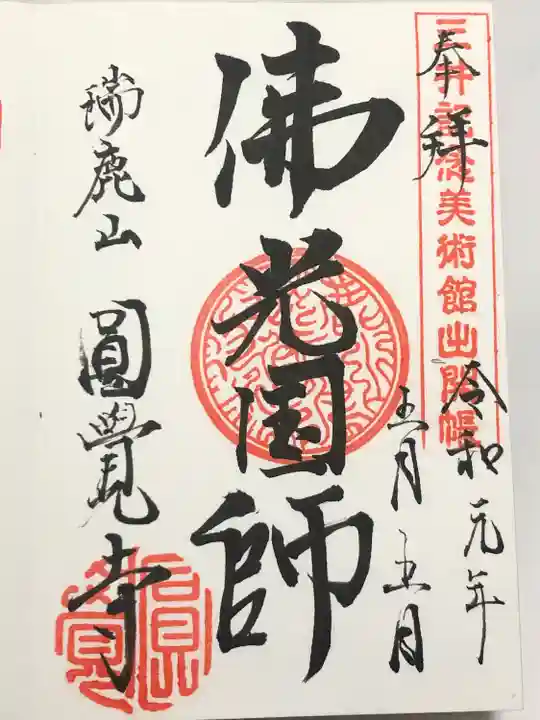 奉拝
三井記念美術館出開帳
令和元年
五月五日
佛光国師
瑞鹿山 圓覺寺
圓覺